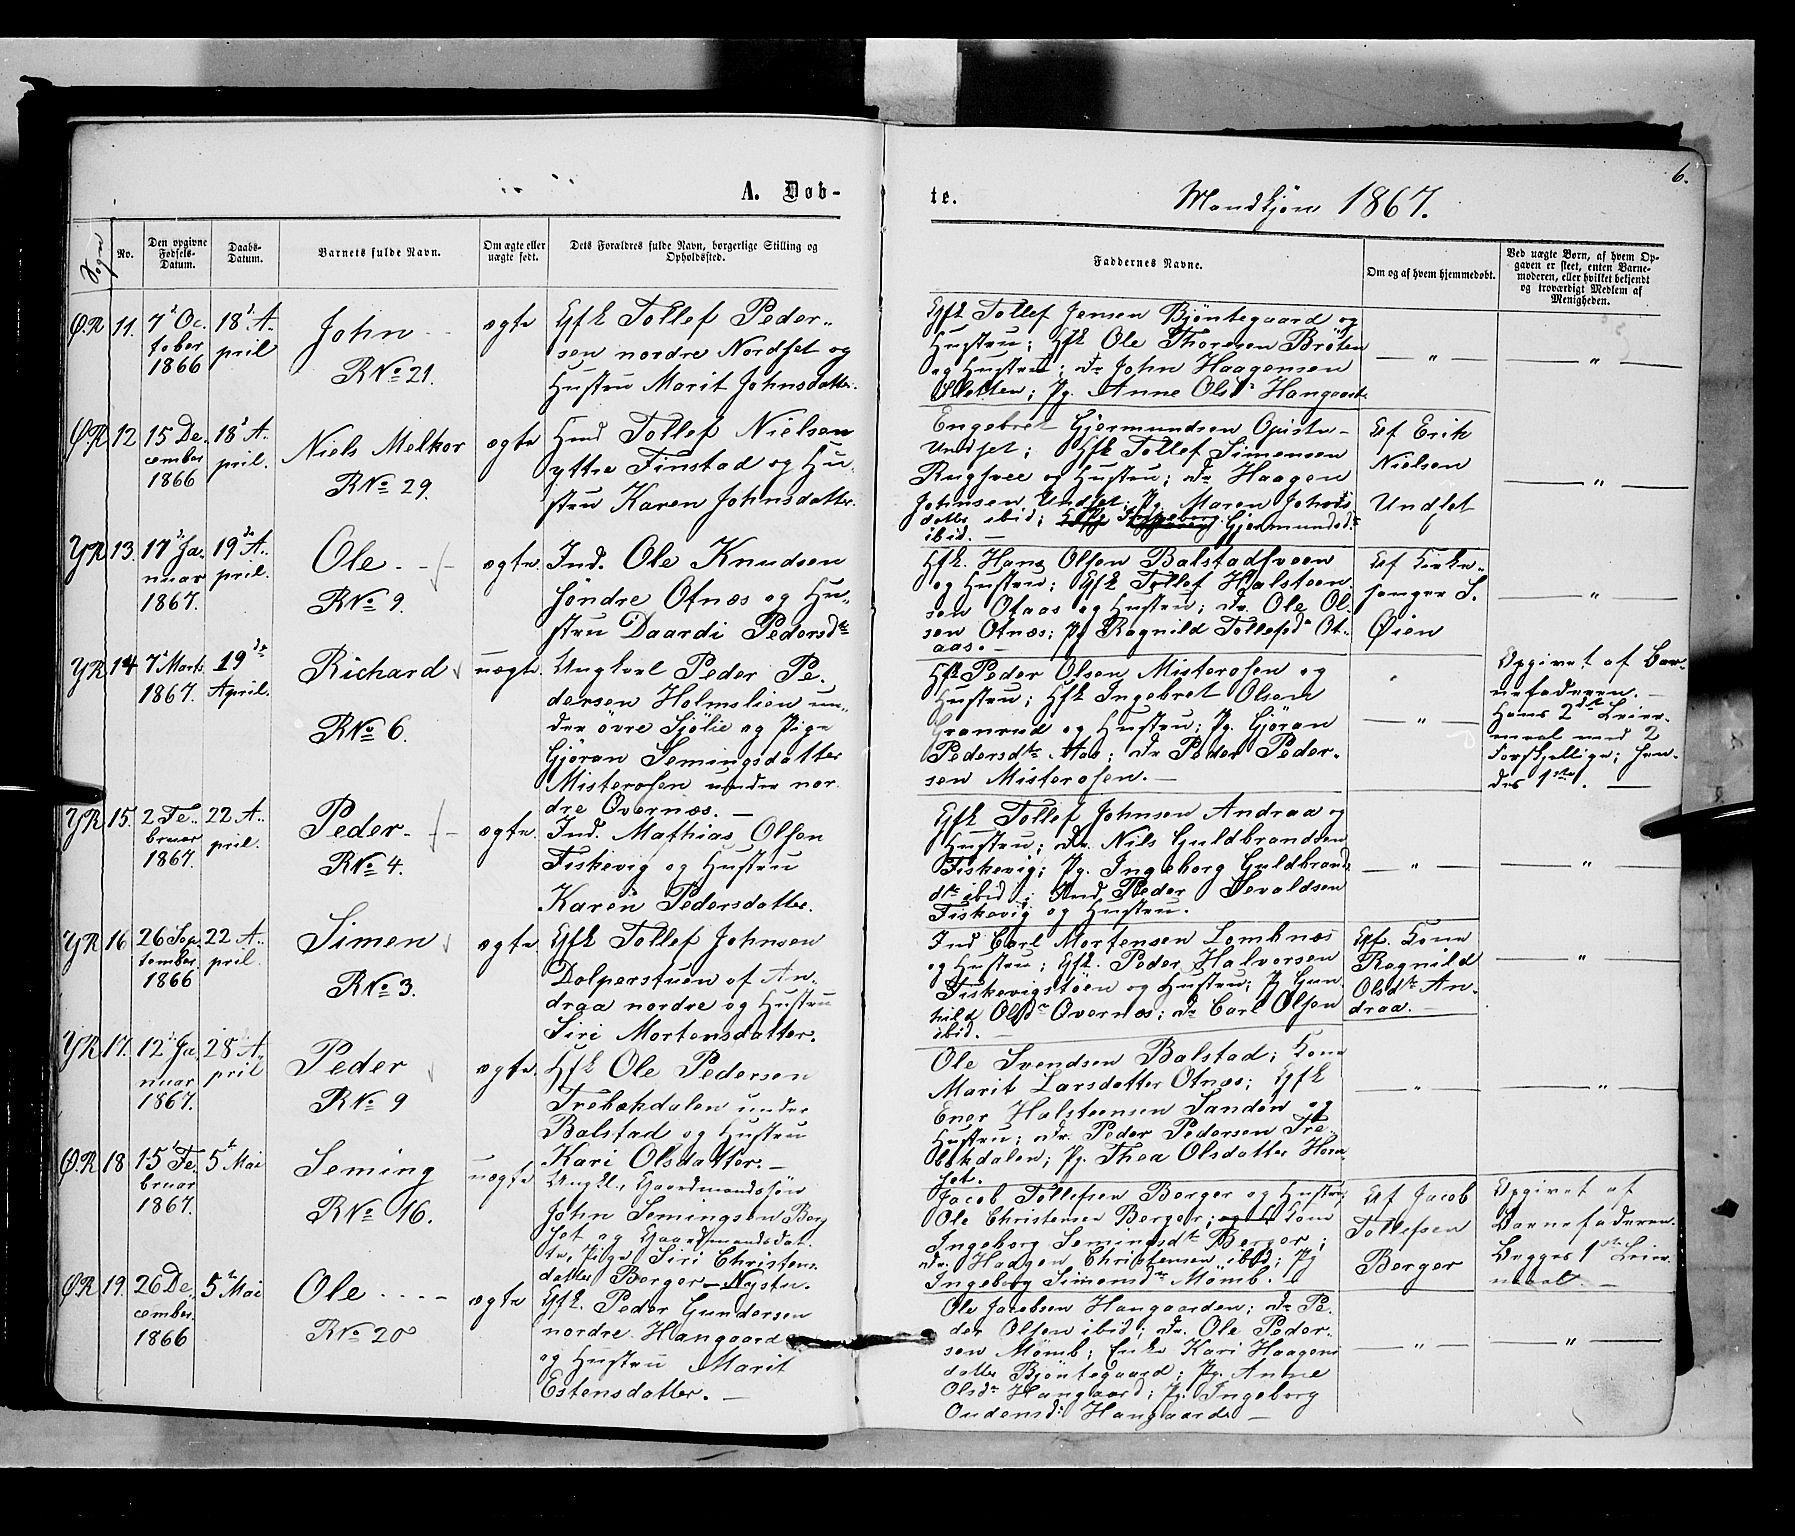 6.
A. Døb-
te. Mandkjøn 1867.
Sogn
No.
Den opgivne
Fødsels-
Datum.
Daabs-
Datum.
Barnets fulde Navn.
Om ægte eller
uægte født.
Dets Forældres fulde Navn, borgerlige Stilling og
Opholdssted.
Faddernes Navne.
Om og af hvem hjemmedøbt.
Ved uægte Børn, af hvem Op-
gaven er skeet, enten Barne-
moderen, eller hvilket bekjendt
og troværdigt Medlem af
Menigheden.
ØR 11. 7de Oc-
tober
1866
18de A-
pril
John
RNo 21.
ægte
Gfk Tollef Peder-
sen nordre Nordset og
Hustru Marit Johnsdatter.
Gfk Tollef Jensen Bjöntegaard og
Hustru; Hfk Ole Thoresen Bråten
og Hustru; Dr John Haagensen
Sletten; Pg. Anne Olsdr Hangaard.
— „ —
— „ —
ØR 12 15 De-
cember
1866
18de A-
pril.
Niels Melkor
RNo 29.
ægte
Hmd Tollef Nielsen
yttre Finstad og Hu-
stru Karen Johnsdatter.
Engebret Gjermundsen Opistu-
Undset; Hfk Tollef Simensen
Rugsvee og Hustru; Dr Haagen
Johnsen Undset; Pg. Maren Johns-
datter ibid; Gjermundsdr
ibid. —
Af Erik
Nielsen
Undset
— „ —
YR 13. 17de Ja-
nuar
1867.
19de A-
pril.
Ole
RNo 9.
ægte.
Ind. Ole Knudsen
söndre Otnæs og Hu-
stru Daardi Pedersdtr
Hfk. Hans Olsen Balstadsveen
og Hustru; Gfk Tollef Halsteen-
sen Otaas og Hustru; Dr. Ole Ol-
sen Otnæs; Pg Ragnild Tollefsdr Ot-
aas. —
Af Kirke-
sanger S.
Øien
— „ —
YR 14 7de Marts
1867.
19de
April.
Richard
RNo 6.
uægte.
Ungkarl Peder Pe-
dersen Holmslien un-
der övre Sjölie og Pige
Gjöran Semingsdatter
Misterosen under nor-
dre Ovrenæs. —
Hfk Peder Olsen Misterosen og
Hustru; Hfk Ingebret Olsen
Granrud og Hustru; Pg. Gjöran
Pedersdtr Aas; Dr Peder Peder-
sen Misterosen. —
— „ —
Opgivet af Bar-
nefaderen. —
Hans 2det Leier-
maal med 2
forskjellige; hen-
des 1ste. —
YR 15. 2 Fe-
bruar
1867.
22 A-
pril.
Peder
RNo 4.
ægte.
Ind. Mathias Olsen
Fiskevig og Hustru
Karen Pedersdatter.
Gfk Tollef Johnsen Andraa og
Hustru; Dr. Nils Guldbrandsen
Fiskevig; Pg. Ingeborg Guldbrands-
dtr ibid; Ind Peder Sevaldsen
Fiskevig og Hustru.
— „ —
— „ —
YR 16 26 Sep-
tember
1866
22 A-
pril.
Simen
RNo 3.
ægte.
Gfk Tollef Johnsen
Dolperstuen af An-
draa nordre og Hustru
Siri Mortensdatter.
Ind Carl Mortensen Lomnæs
og Hustru; Gfk. Peder Halvorsen
Fiskevigstöen og Hustru; Pg Gun-
hild Olsdr Overnæs; Dr Carl Olsen
ibid. —
Gf. Kone
Ragnild
Olsdtr An-
draa. —
— „ —
YR 17. 12de Ja-
nuar
1867.
28de A-
pril
Peder
RNo 9
ægte.
Hfk Ole Pedersen
Trebækdalen under
Balstad og Hustru
Kari Olsdatter. —
Ole Svendsen Balstad; Kone
Marit Larsdatter Otnæs; Gfk
Ener Halsteensen Sanden og
Hustru; Dr. Peder Pedersen Tre-
bækdalen; Pg. Thea Olsdatter Horn-
set.
— „ —
— „ —
ØR 18 15de Fe-
bruar
1867.
5te Mai
Seming
RNo 16.
uægte
Ungk., Gaardmandssön
John Semingsen Berg-
set og Gaardmandsdat-
ter, Pige Siri Christens-
datter Berger-Nystu.
Jacob Tollefsen Berger og Hustru;
Ole Christensen Berger; Kone
Ingeborg Semingsdtr Berger;
Dr. Haagen Christensen ibid; Pg
Ingeborg Simensdtr Mömb.
Af Jacob
Tollefsen
Berger
Opgivet af
Barnefaderen.
Begges 1ste Leier-
maal. —
ØR 19. 26 De-
cember
1866
5te Mai
Ole
RNo 20
ægte
Gfk. Peder Gundersen
nordre Hangaard
og Hustru Marit
Estensdatter. —
Ole Jacobsen Hangaarden; Dr Pe-
der Olsen ibid; Dr. Ole Peder-
sen Mömb; Enke Kari Haagens-
datter Bjöntegaard; Pg. Anne
Olsdr Hangaard; Pg. Ingeborg
Oudensdr Hangaard —
— „ —
— „ —